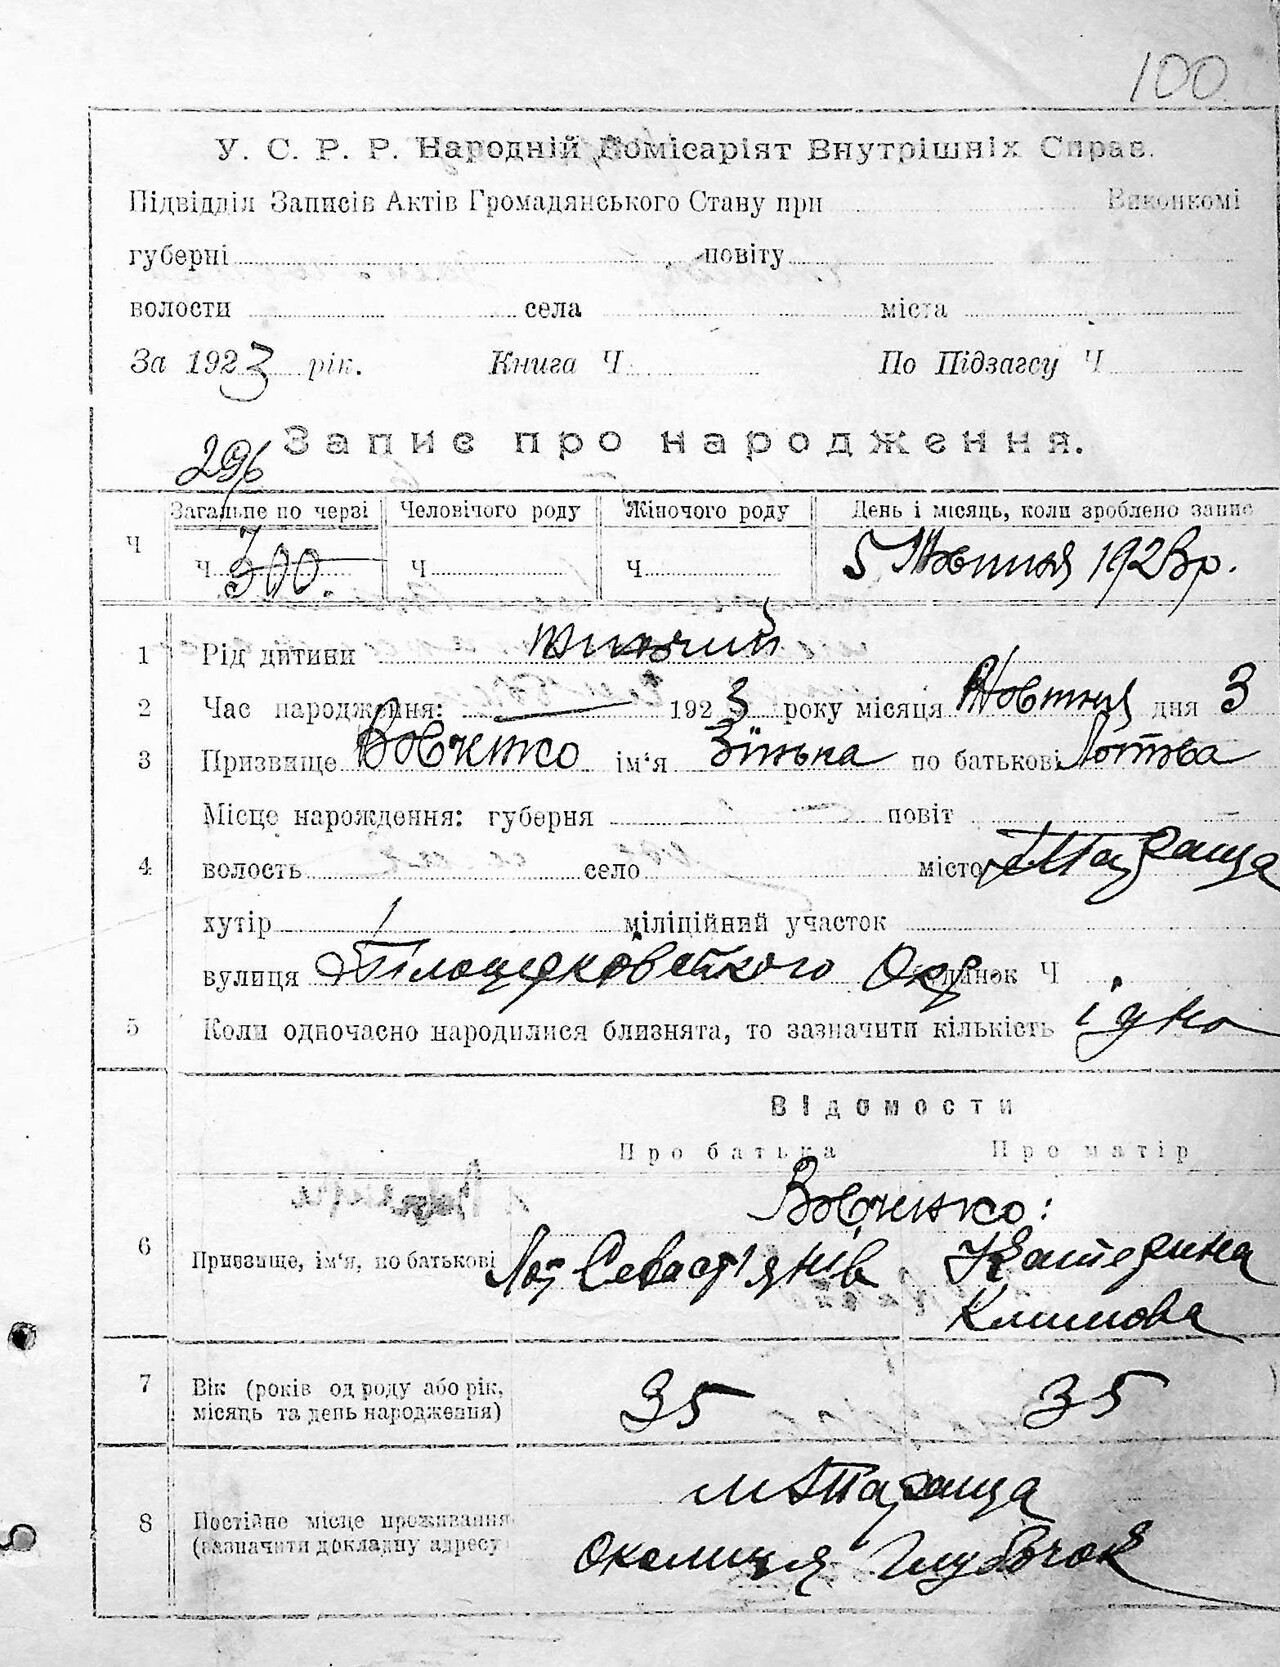 100
У. С. Р. Р. Народній Комісаріят Внутрішніх Справ.
Підвідділ Записів Актів Громадянського Стану при Виконкомі
губерні повіту
волости села міста
За 1923 рік. Книга Ч. По Підзагсу Ч
296 Запис про народження.
Загальне по черзі Человічого роду Жіночого роду День і місяць, коли зроблено запис
Ч Ч 300. Ч Ч 5 Жовтня 1923 р.
1 Рід дитини жиночий
2 Час народження: 1923 року місяця Жовтня дня 3
3 Призвище Вовченко ім'я Зінька по батькові
Місце народження: губерня повіт
4 волость село місто Тараща
хутір міліційний участок
вулиця Білоцерковського Окр. Ч
5 Коли одночасно народилися близнята, то зазначити кількість їдно
Відомости
Про батька Про матір
Вовченко:
6 Призвище, ім'я, по батькові Лот Севаст'янів Катерина
Климова
7 Вік (років од роду або рік, 35 35
місяць та день народження)
м. Тараща
8 Постійне місце проживання
(зазначити докладну адресу) околиця Глибочок